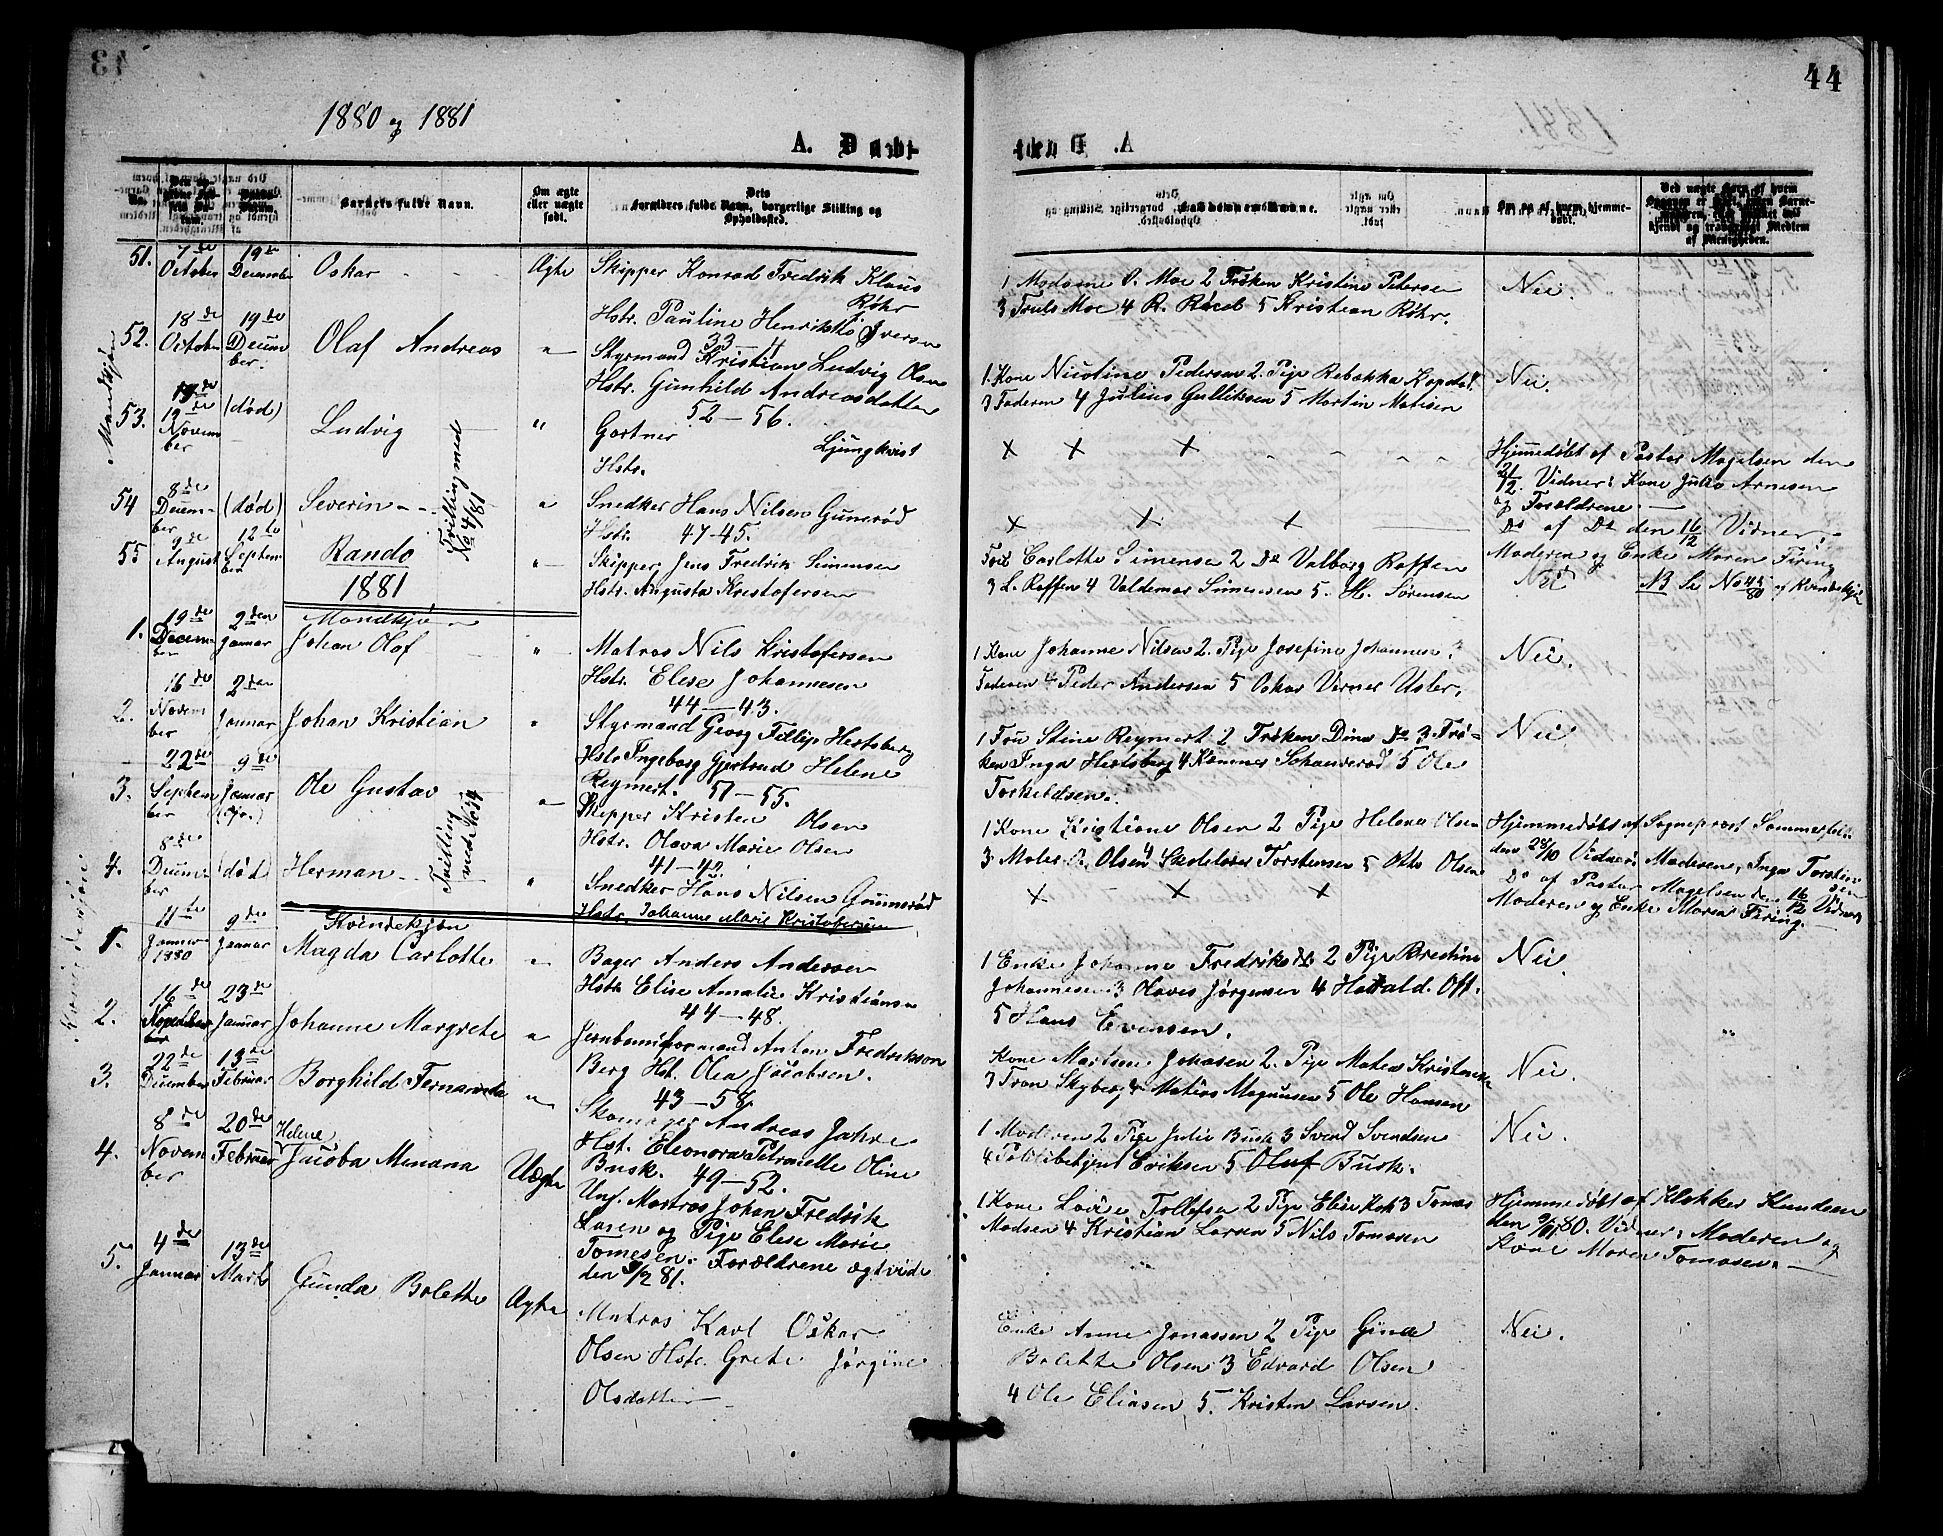 44
1880 og 1881
A. D
Barnets fulde Navn.
Om ægte eller uægte født.
Dets Forældres fulde Navn, borgerlige Stilling og Opholdssted.
Om og af hvem hjemmedøbt.
Mandkjøn
51. 7de October 19de December Oskar Ægte Skipper Konrad Fredrik Klaus
Røhr
Hstr. Pauline Henriette Iversen
33 - 4
1 Madame O. Moe 2 Frøken Kristine Petersen
3 Truls Moe 4 R. Røed 5 Kristian Røhr.
Nei.
52. 18de October 19de December. Olaf Andreas " Styrmand Kristian Ludvig Olsen
Hstr. Gunhild Andreasdatter
52 - 56.
1. Kone Nicoline Pedersen 2. Pige Rebekka
3 Faderen 4 Julius Gulliksen 5 Martin Matisen
Nei.
53. 12de November (død) Ludvig " Gartner Ljungkvist
Hstr.
x x x
Hjemmedøbt af Pastor Magelsen den
2/12. Vidner: Kone Julie Arnesen
og Forældrene.
54 8de December (død) Severin Trilling med No 4/81 " Snedker Hans Nilsen Gunerød
Hstr. 47-45.
x x x
Do af Do den 16/12 Vidner:
Moderen og Enke Maren Firing
55 9de August 12te September Rando " Skipper Jens Fredrik Simensen
Hstr. Augusta Kristofersen
Carlotte Simensen 2 Do Valborg Roffen
3 L. Roffen 4 Valdemar Simensen 5. H. Sørensen
Nei
NB Se No 45/80 af Kvindekjøn
1881
Mandkjøn
1. 19de December 2den Januar Johan Olaf " Matros Nils Kristofersen
Hstr. Elise Johannesen
44 - 43.
1 Kone Johanne Nilsen 2. Pige Josefine Johannesen 3
Faderen 4 Peder Andersen 5 Oskar Verner Usler.
Nei.
2. 16de November 2den Januar Johan Kristian " Styrmand Georg Fillip Hertsberg
Hstr Ingeborg Gjertrud Helene
Reymert. 51 - 55.
1 Fru Stine Reymert 2 Frøken Dina Do 3 Frø-
ken Inga Hertsberg 4 5 Ole
Torkildsen.
Nei
3. 22de September 9de Januar Ole Gustav " Skipper Kristen Olsen
Hstr. Olava Marie Olsen
41 - 42.
1 Kone Kristiane Olsen 2 Pige Helene Olsen
3. Maler O. Olsen 4 Skolelærer Torstensen 5 Otto Olsen
Hjemmedøbt af Sogneprest Sommerfelt
den 28/10 Vidner: Moderen, Inga Torstensen
4. 8de December (død) Herman Trilling med No 54 " Snedker Hans Nilsen Gunnerød
Hstr. Johanne Marie Kristofersen
x x x
Do af Pastor Magelsen den 16/12 Vidner
Moderen og Enke Maren Firing.
Kvindekjøn
Kvindekjøn
1. 11te Januar 1880 9de Januar Magda Carlotte " Bager Anders Andersen
Hstr Elise Amalie Kristiansen
44 - 48.
1 Enke Johanne Fredriksdt 2 Pige Prestine
Johannesen 3 Olaves Jørgensen 4 Harald. Ott.
5 Hans Evensen.
Nei
2. 16de 23de Januar Johanne Margrete " Jernbaneformand Anton Fredrikson
Berg Hst. Olea Jacobsen.
43 - 58
Kone Martine Johasen 2. Pige Matea Kristensen
3 Tron Skyberg 4 Matias Magnusen 5 Ole Hansen
Nei.
3. 22de December 13de Februar Borghild Fernanda " Skomager Andreas Jahre
Hst. Eleonora Petronelle Oline
Busk. 49 - 52.
1 Moderen 2 Pige Julie Busk 3 Svend Svendsen
4 Politibetjent Eriksen 5 Oluf Busk.
Nei.
4. 8de November 20de Februar Helene Jacoba Minana Uægte Ung. Matros Johan Fredrik
Larsen og Pige Elise Marie
Tomesen. Forældrene ægtviede
den 3/2 81.
1 Kone Lovise Tollefsen 2 Pige Elise Rok 3 Tomas
Madsen 4 Kristian Larsen 5 Nils Tomasen
Hjemmedøbt af Klokker Knudsen
den 9/11 80. Vidner: Moderen og
Kone Maren Tomasen.
5. 4de Januar 13de Marts Gunda Bolette Ægte Matros Karl Oskar
Olsen Hstr. Grete Jørgine
Olsdatter
Enke Anne Jonassen 2 Pige Ginde
Bolette Olsen 3 Edvard Olsen
4 Ole Eliasen 5. Kristen Larsen.
Nei.